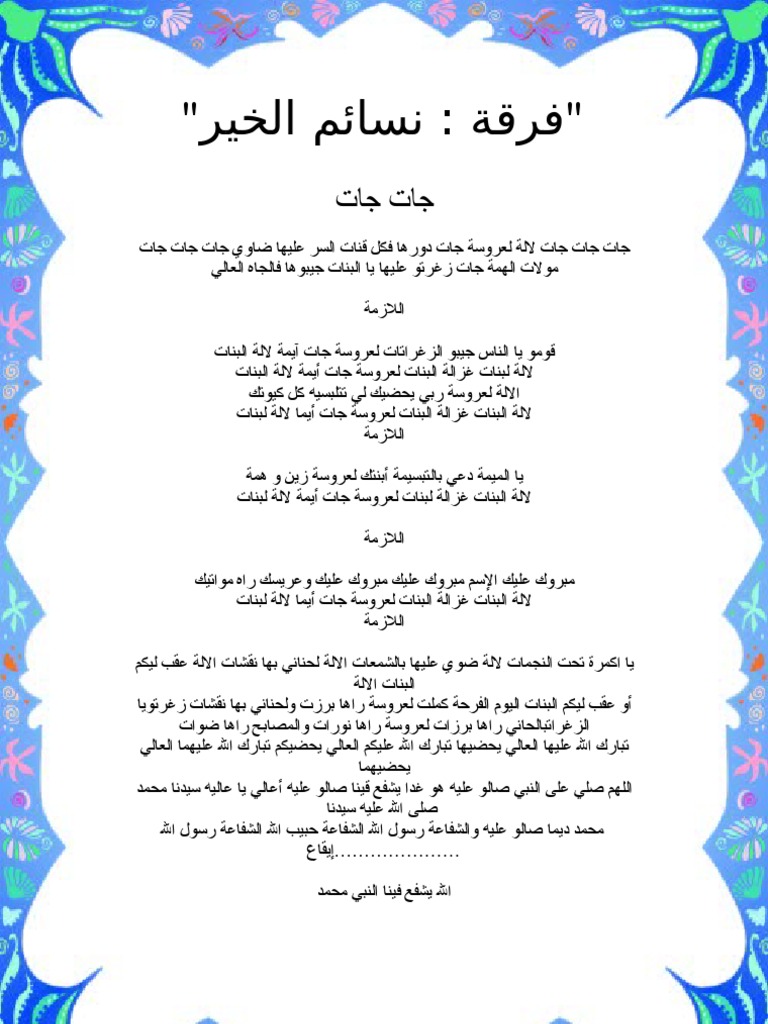 "فرقة : نسائم الخير"
جات جات
جات جات جات لالة لعروسة جات دورها فكل قنات السر عليها ضاوي جات جات جات
مولات الهمة جات زغرتو عليها يا البنات جيبوها فالجاه العالي
اللازمة
قومو يا الناس جيبو الزغراتات لعروسة جات آيمة لالة البنات
لالة لبنات غزالة البنات لعروسة جات أيمة لالة البنات
الالة لعروسة ربي يحضيك لي تتلبسيه كل كيوتك
لالة البنات غزالة البنات لعروسة جات أيما لالة لبنات
اللازمة
يا الميمة دعي بالتبسيمة أبنتك لعروسة زين و همة
لالة البنات غزالة لبنات لعروسة جات أيمة لالة لبنات
اللازمة
مبروك عليك الإسم مبروك عليك مبروك عليك وعريسك راه مواتيك
لالة البنات غزالة البنات لعروسة جات أيما لالة لبنات
اللازمة
يا اكمرة تحت النجمات لالة ضوي عليها بالشمعات الالة لحناني بها نقشات الالة عقب ليكم
البنات الالة
أو عقب ليكم البنات اليوم الفرحة كملت لعروسة راها برزت ولحناني بها نقشات زغرتويا
الزغراتبالحاني راها برزات لعروسة راها نورات والمصابح راها ضوات
تبارك الله عليها العالي يحضيها تبارك الله عليكم العالي يحضيكم تبارك الله عليهما العالي
يحضيهما
اللهم صلي على النبي صالو عليه هو غدا يشفع فينا صالو عليه أعالي يا عاليه سيدنا محمد
صلى الله عليه سيدنا
محمد ديما صالو عليه والشفاعة رسول الله الشفاعة حبيب الله الشفاعة رسول الله
.....................إيقاع
الله يشفع فينا النبي محمد